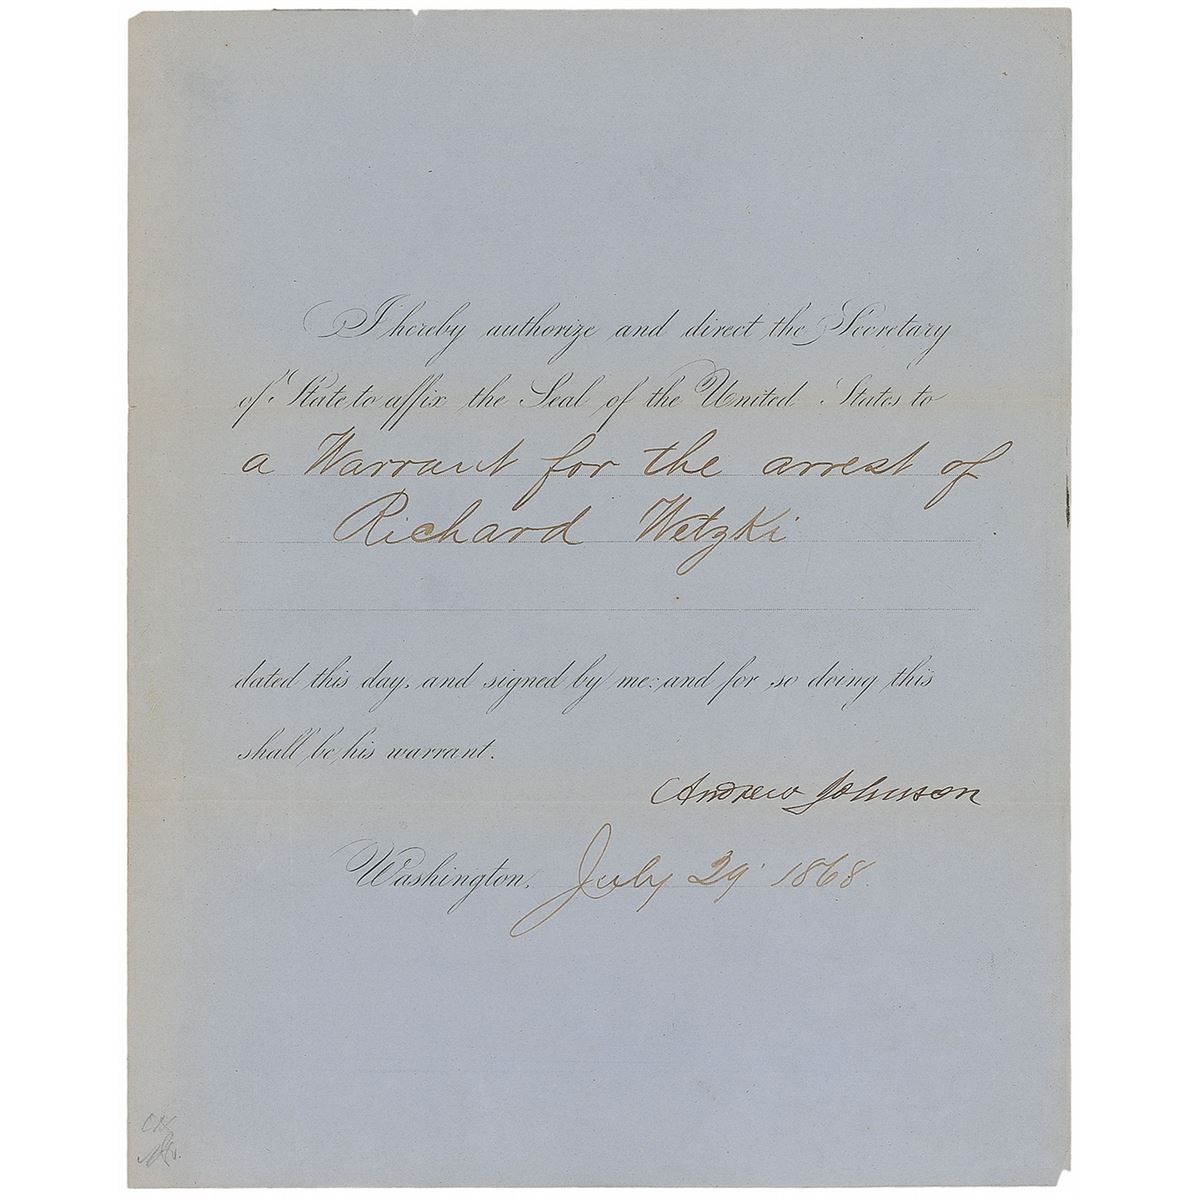 I hereby authorize and direct the Secretary
of State to affix the Seal of the United States to
a Warrant for the arrest of
Richard Wetzki
dated this day, and signed by me: and for so doing this
shall be his warrant.
Andrew Johnson
Washington, July 29' 1868.